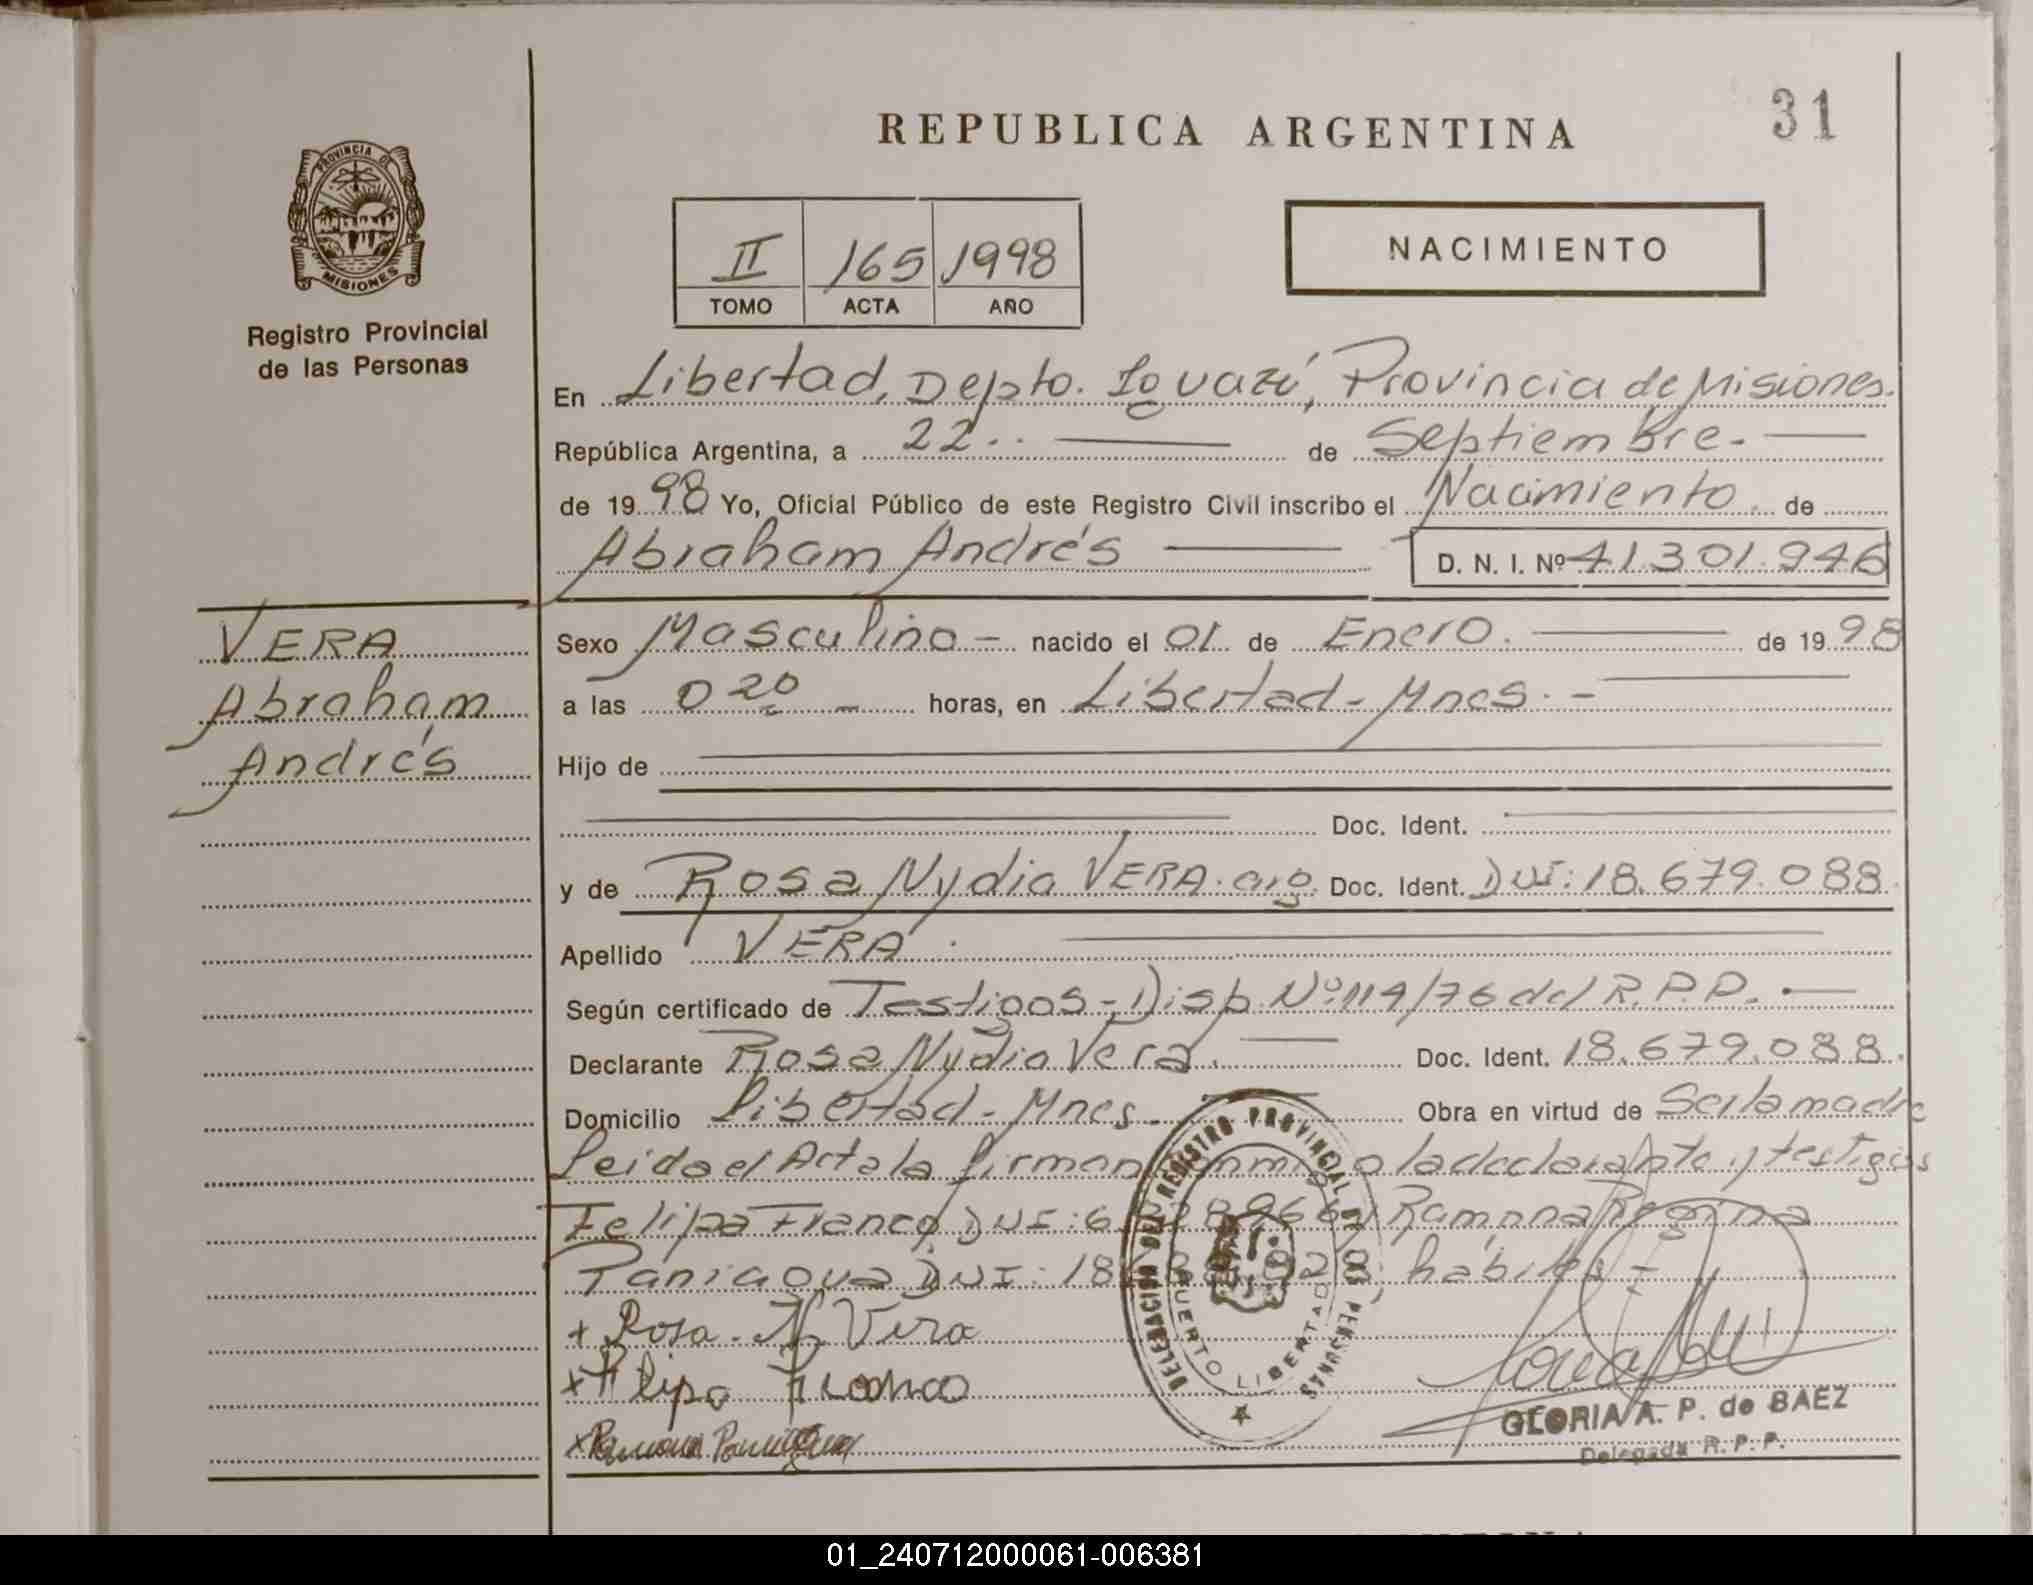 31
REPUBLICA ARGENTINA
PROVINCIA DE
MISIONES
Registro Provincial
de las Personas
II 165 1998
TOMO ACTA AÑO
NACIMIENTO
En Libertad, Depto. Iguazú, Provincia de Misiones.
República Argentina, a 22.. de Septiembre.
de 1998 Yo, Oficial Público de este Registro Civil inscribo el Nacimiento de
Abraham Andrés D. N. I. Nº 41.301.946
VERA
Abraham
Andrés
Sexo Masculino - nacido el 01 de Enero. de 1998
a las 0 20 horas, en Libertad - Mnes. -
Hijo de
Doc. Ident.
y de Rosa Nydia VERA. arg. Doc. Ident. DNI: 18.679.088
Apellido VERA
Según certificado de Testigos - Disp. Nº 119/76 del R.P.P. -
Declarante Rosa Nydia Vera. Doc. Ident. 18.679.088.
Domicilio Libertad - Mnes. Obra en virtud de Ser la madre
Leida el Acta la firman conmigo la declarante y testigos
Felipa Franco, DNI: Ramona Regina
Paniagua DNI: habiles -
+ Rosa. N Vera
x Felipa Franco
x Ramona Paniagua
DELEGACION DEL REGISTRO PROVINCIAL DE LAS PERSONAS
PUERTO LIBERTAD
GLORIA A. P. de BAEZ
Delegada R. P. P.
01_240712000061-006381